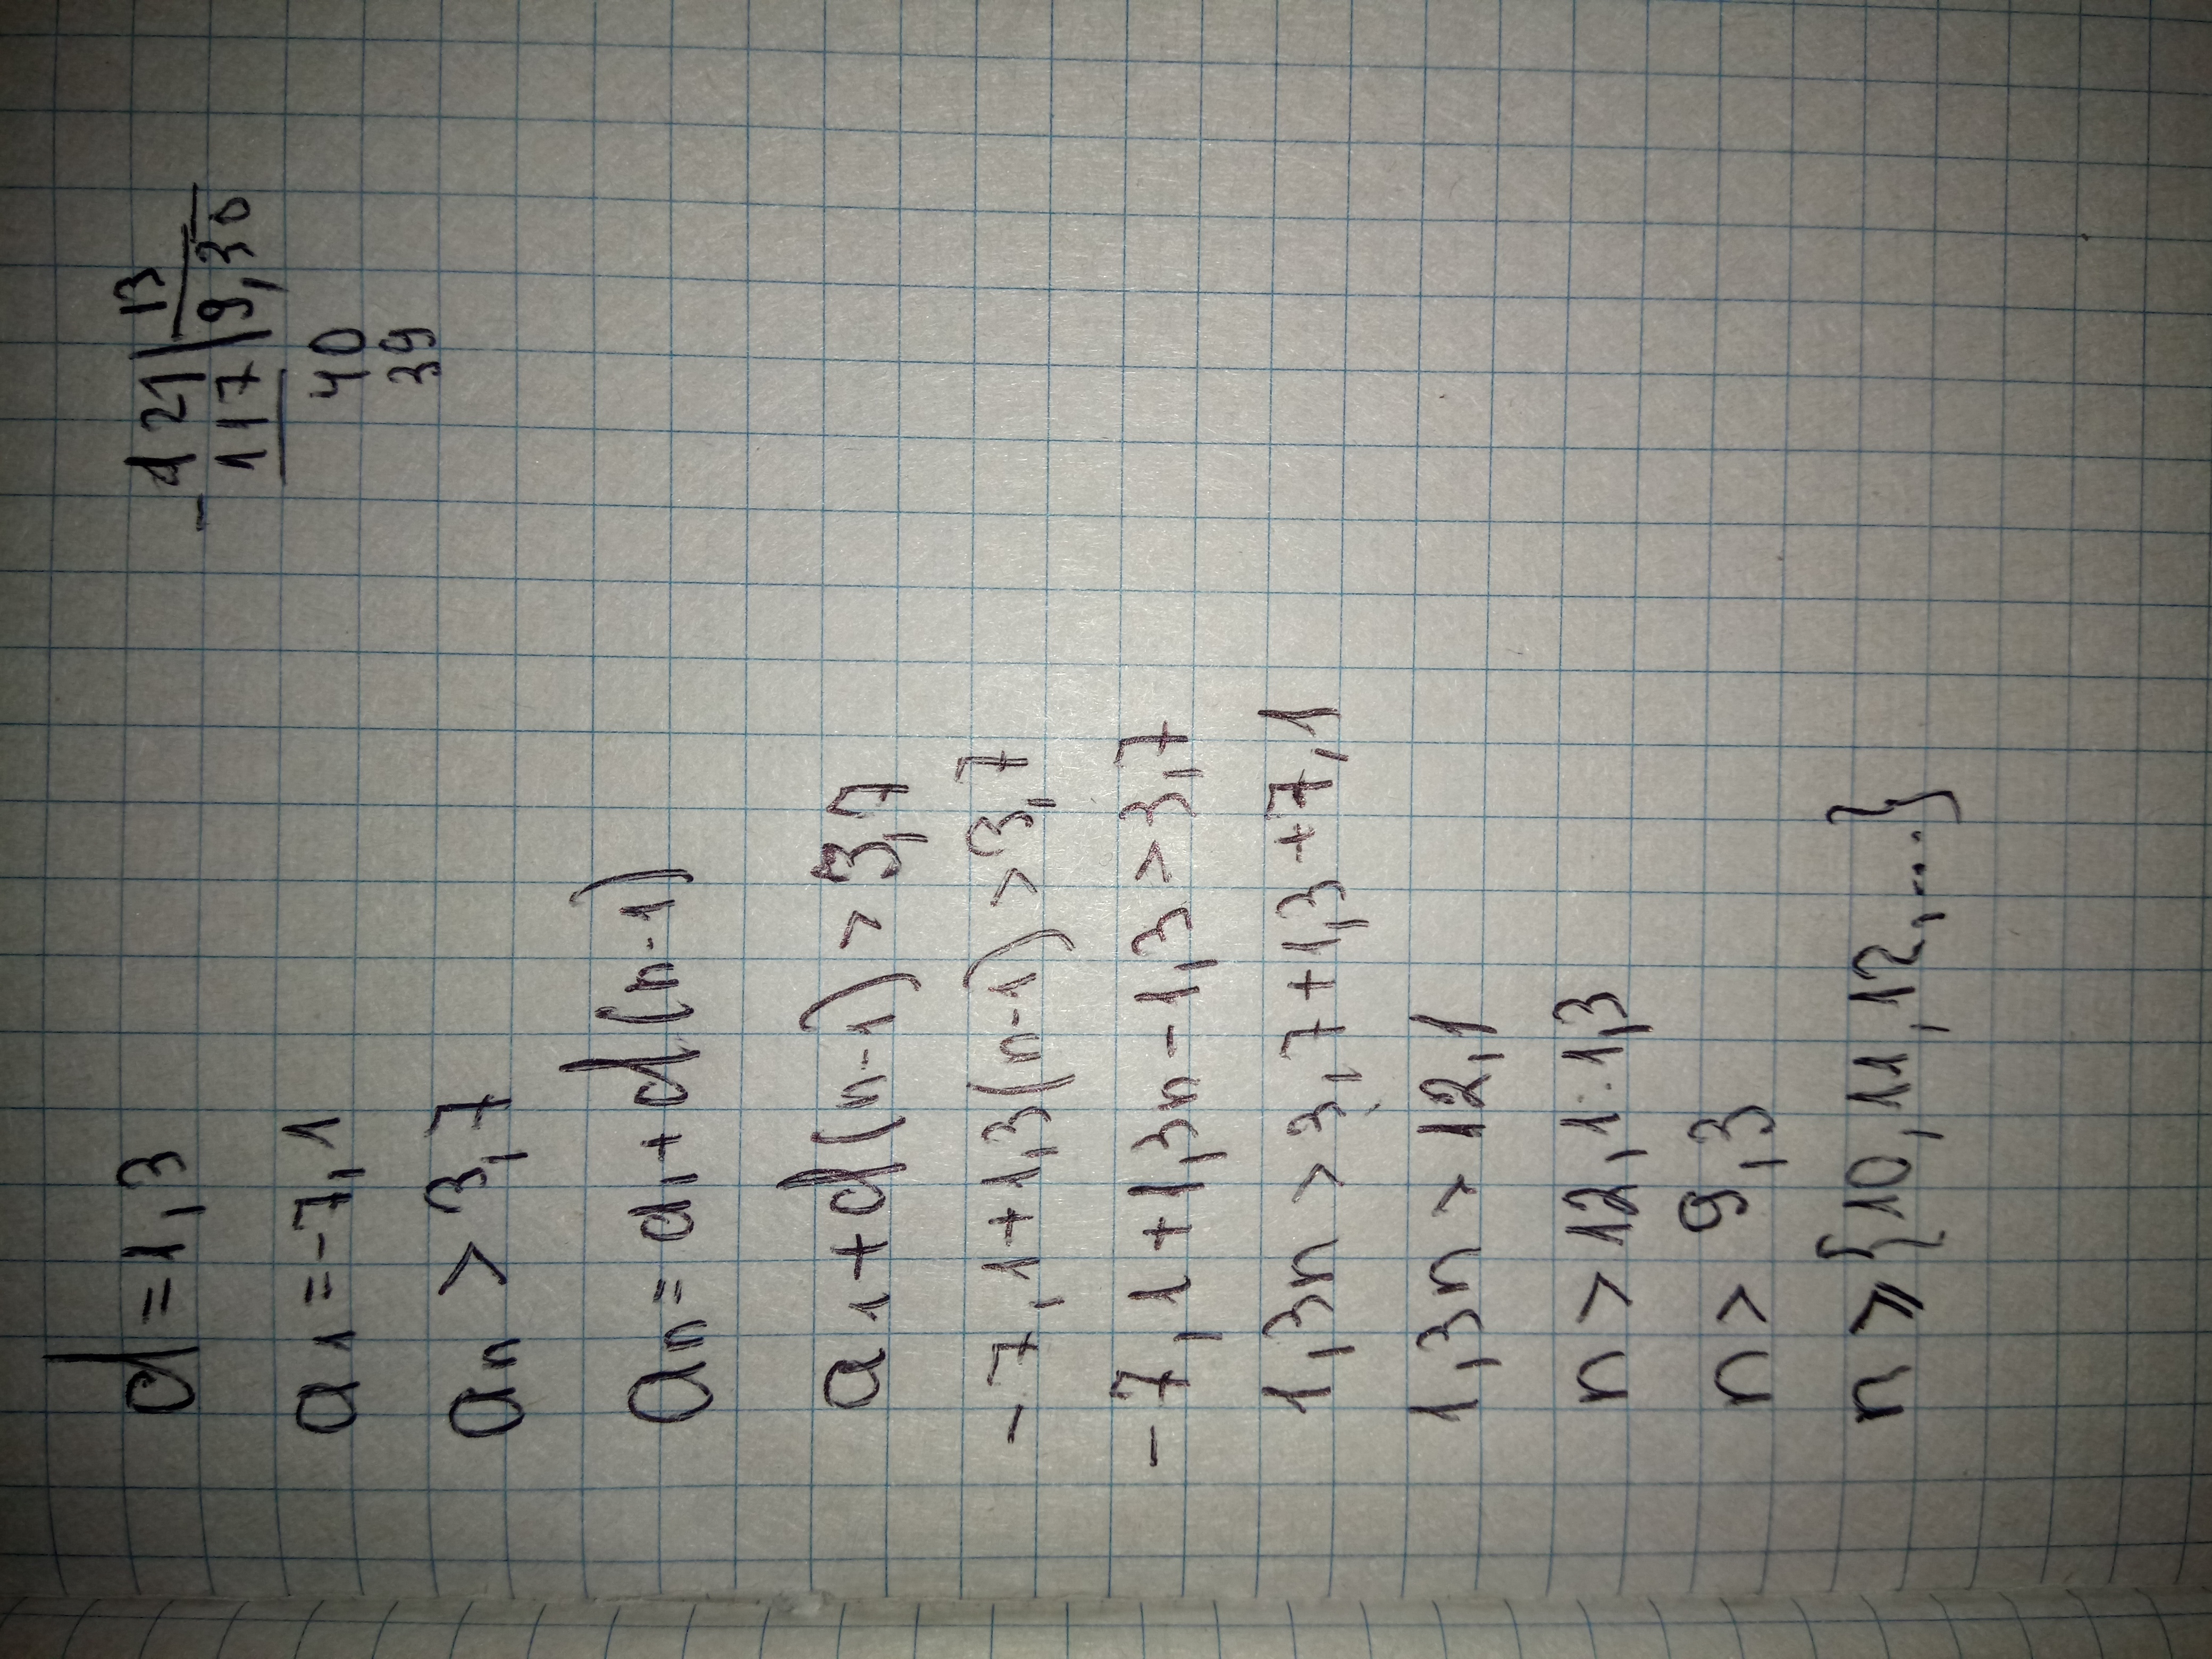 d = 1,3
a1 = -7,1
an > 3,7
an = a1 + d(n-1)
a1 + d(n-1) > 3,7
-7,1 + 1,3(n-1) > 3,7
-7,1 + 1,3n - 1,3 > 3,7
1,3n > 3,7 + 1,3 + 7,1
1,3n > 12,1
n > 12,1 : 1,3
n > 9,3
n ⩾ {10, 11, 12, ....}
- 121 | 13
117 | 9,30
40
39